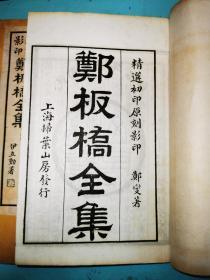 精選初印原刻影印
鄭燮著
鄭板橋全集
上海掃葉山房發行
影印
鄭板橋全集